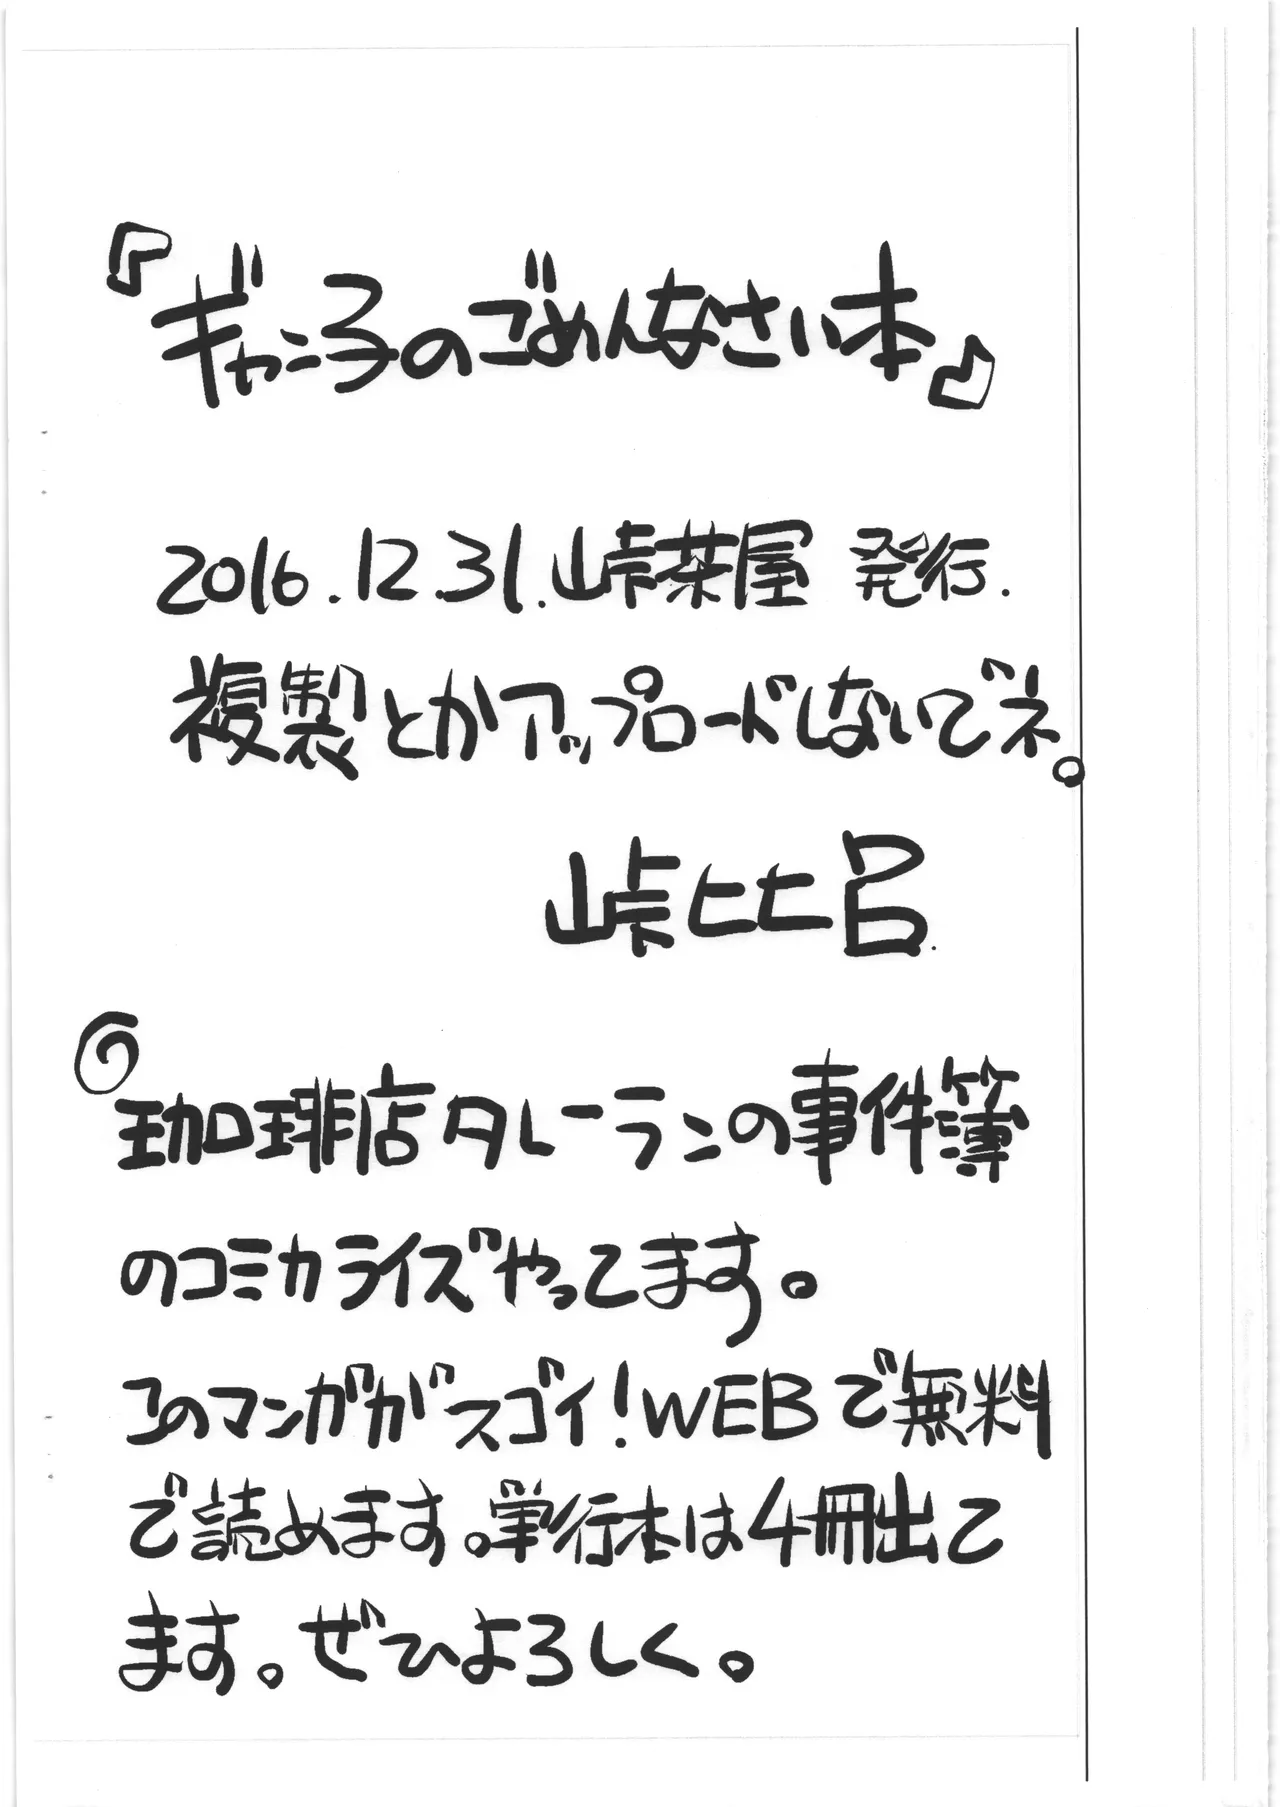 『ギャン子のごめんなさい本』
2016.12.31.峠茶屋 発行.
複製とかアップロードしないでネ。
峠比呂.
◎珈琲店タレーランの事件簿
のコミカライズやってます。
このマンガがスゴイ!WEBで無料
で読めます。単行本は4冊出て
ます。ぜひよろしく。